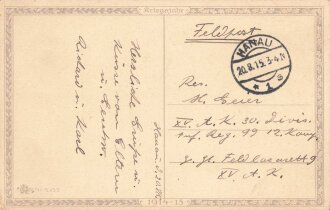 Kriegsjahr
Feldpost
HANAU
20.8.15. 3-4 N
* 1 e
Res.
H. Geier
XV. A. K. 30. Divis.
Inf. Reg. 99 12. Komp.
z. Zt. Feldlazarett 9
XV. A. K.
Hanau d.
Herzliche Grüße u.
Küsse von Eltern
u. Geschw.
Richard u. Karl
1914-15